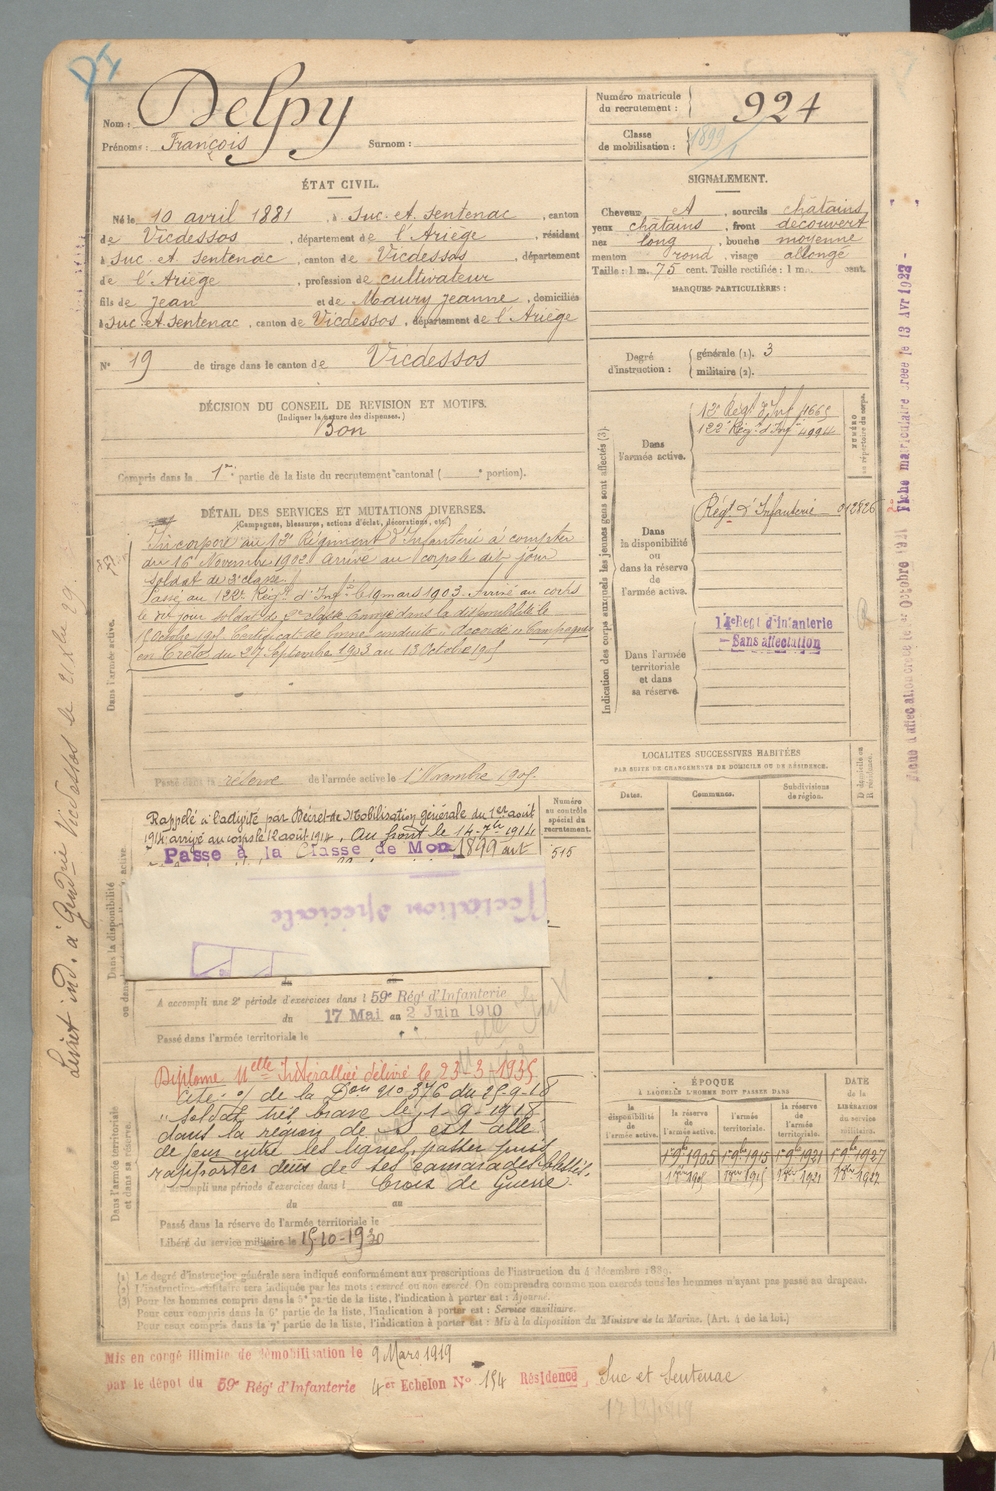 Nom : Delpy
Prénoms : François Surnom :
Numéro matricule du recrutement : 924
Classe de mobilisation : 1899
ÉTAT CIVIL.
Né le 10 avril 1881, à Suc-et-Sentenac, canton
de Vicdessos, département de l'Ariège, résidant
à Suc et Sentenac, canton de Vicdessos, département
de l'Ariège, profession de cultivateur
fils de Jean et de Maury Jeanne, domiciliés
à Suc-et-Sentenac, canton de Vicdessos, département de l'Ariège
N° 19 de tirage dans le canton de Vicdessos
SIGNALEMENT.
Cheveux et, sourcils châtains
yeux châtains, front découvert
nez long, bouche moyenne
menton rond, visage allongé
Taille : 1 m. 75 cent. Taille rectifiée : 1 m. cent.
MARQUES PARTICULIÈRES :
Degré d'instruction : générale (1). 3
militaire (2).
DÉCISION DU CONSEIL DE REVISION ET MOTIFS.
(Indiquer la nature des dispenses.)
Bon
Compris dans la 1re partie de la liste du recrutement cantonal ( e portion).
DÉTAIL DES SERVICES ET MUTATIONS DIVERSES.
(Campagnes, blessures, actions d'éclat, décorations, etc.)
Dans l'armée active.
Incorporé au 12e Régiment d'Infanterie à compter
du 16 Novembre 1902 Arrivé au corps le dit jour
soldat de 2e classe.
Passé au 122e Régt d'Infie le 19 mars 1903. Arrivé au corps
le dit jour soldat de 2e classe Envoyé dans la disponibilité le
Octobre 1905 Certificat de bonne conduite Accordé Campagnes
en Crète du 27 Septembre 1903 au 13 Octobre 1905
Passé dans la réserve de l'armée active le 1 Novembre 1905
Indication des corps auxquels les jeunes gens sont affectés (3).
Dans l'armée active.
12e Régt d'Inf 1665
122e Régt d'Inf 4994
NUMÉRO au répertoire du corps.
Dans la disponibilité ou dans la réserve de l'armée active.
Régt d'Infanterie
Dans l'armée territoriale et dans sa réserve.
14e Régt d'infanterie
Sans affectation
LOCALITÉS SUCCESSIVES HABITÉES
PAR SUITE DE CHANGEMENTS DE DOMICILE OU DE RÉSIDENCE.
Dates. Communes. Subdivisions de région. D domicile ou R résidence.
Numéro au contrôle spécial du recrutement.
515
Rappelé à l'activité par Décret de Mobilisation générale du 1er août
1914 arrivé au corps le 12 août 1914. Au front le 14-7bre 1914
Passé à la Classe de Mon 1899 art
ffectation spéciale
A accompli une 2e période d'exercices dans l 59e Rég' d'Infanterie
du 17 Mai au 2 Juin 1910
Passé dans l'armée territoriale le
Diplome Melle Interalliée délivré le 23-3-1935
Cité o/ de la Don No 376 du 25-9-18
"Soldat très brave le 1-9-1918
dans la région de S est allé
de jour entre les lignes, panser puis
rapporter deux de ses camarades blessés
Croix de Guerre
Accompli une période d'exercices dans l
du au
Passé dans la réserve de l'armée territoriale le
Libéré du service militaire le 15-10-1930
Dans l'armée territoriale et dans sa réserve.
ÉPOQUE
À LAQUELLE L'HOMME DOIT PASSER DANS
la disponibilité de l'armée active. la réserve de l'armée active. l'armée territoriale. la réserve de l'armée territoriale.
DATE de la LIBÉRATION du service militaire.
1 9b 1905 1 9b 1915 1 9b 1921 1 9b 1927
(1) Le degré d'instruction générale sera indiqué conformément aux prescriptions de l'instruction du 4 décembre 1889.
(2) L'instruction militaire sera indiquée par les mots : exercé ou non exercé. On comprendra comme non exercés tous les hommes n'ayant pas passé au drapeau.
(3) Pour les hommes compris dans la 5e partie de la liste, l'indication à porter est : Ajourné.
Pour ceux compris dans la 6e partie de la liste, l'indication à porter est : Service auxiliaire.
Pour ceux compris dans la 7e partie de la liste, l'indication à porter est : Mis à la disposition du Ministre de la Marine. (Art. 4 de la loi.)
Mis en congé illimité de démobilisation le 9 Mars 1919
par le dépôt du 59e Rég' d'Infanterie 4er Echelon No 154 Résidence Suc et Sentenac
Livret ind. à Gendrie Vicdessos le
Fiche matriculaire créée le 13 Avr 1922
Fiche d'affectation créée le Octobre 1921